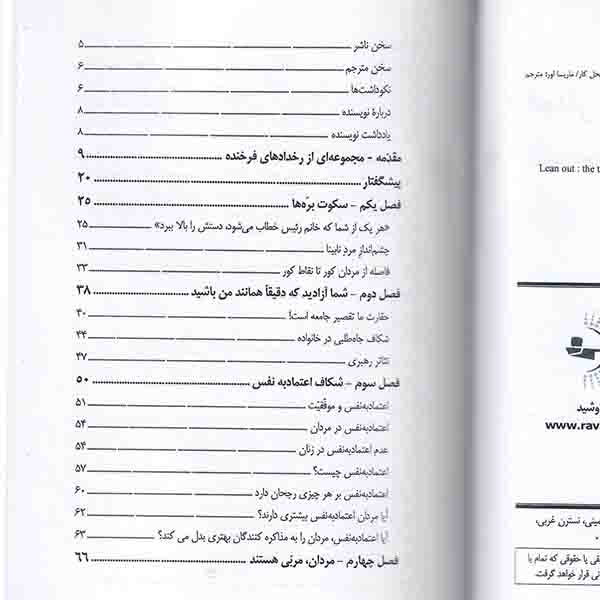 سخن ناشر ۵
سخن مترجم ۶
نکوداشت‌ها ۶
دربارهٔ نویسنده ۸
یادداشت نویسنده ۸
مقدّمه - مجموعه‌ای از رخدادهای فرخنده ۹
پیشگفتار ۲۰
فصل یکم - سکوت برّه‌ها ۲۵
«هر یک از شما که خانم رئیس خطاب می‌شود، دستش را بالا ببرد» ۲۵
چشم‌انداز مردِ نابینا ۳۱
فاصله از مردان کور تا نقاط کور ۳۳
فصل دوم - شما آزادید که دقیقاً همانند من باشید ۳۸
حقارت ما تقصیر جامعه است! ۴۰
شکاف جاه‌طلبی در خانواده ۴۴
تئاتر رهبری ۴۷
فصل سوم - شکاف اعتمادبه نفس ۵۰
اعتمادبه‌نفس و موفّقیّت ۵۱
اعتمادبه‌نفس در مردان ۵۴
عدم اعتمادبه‌نفس در زنان ۵۴
اعتمادبه‌نفس چیست؟ ۵۷
اعتمادبه‌نفس بر هر چیزی رجحان دارد ۶۰
آیا مردان اعتمادبه‌نفس بیشتری دارند؟ ۶۲
آیا اعتمادبه‌نفس، مردان را به مذاکره کنندگان بهتری بدل می کند؟ ۶۳
فصل چهارم - مردان، مربّی هستند ۶۶
حل کار/ ماریسا اور؛ مترجم
Lean out : the t
وشید
www.rav
مینی، نسترن غربی،
فی یا حقوقی که تمام یا
نی قرار خواهد گرفت.